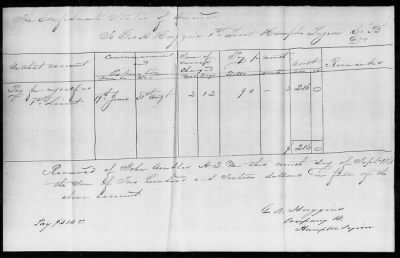 The Confederate States of America
To Geo A. Huggins 1st Lieut Hampton Legion Co B
On what account
Commencement & Expiration
Time of Service Charged
Pay per month
Amount
Remarks
Pay for myself as 19th June 31st Augt 2 12 90 — $ 216 00
1st Lieut
$ 216 00
Received of John Ambler A Q M this ninth day of Sept
the Sum of Two hundred and Sixteen dollars in full of the
above account
Geo A. Huggins
Company B.
Hampton Legion
Pay $216